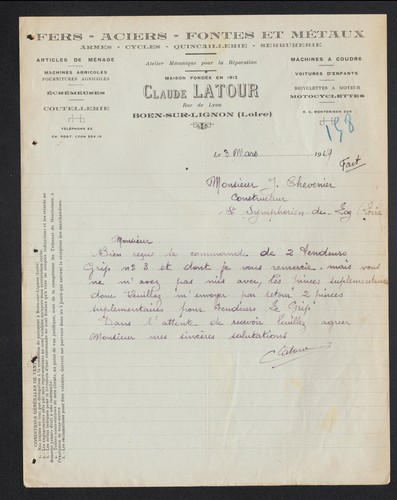 FERS - ACIERS - FONTES ET MÉTAUX
ARMES - CYCLES - QUINCAILLERIE - SERRURERIE
ARTICLES DE MÉNAGE
MACHINES AGRICOLES
FOURNITURES AGRICOLES
ÉCRÉMEUSES
COUTELLERIE
TÉLÉPHONE 23
CH. POST. LYON
Atelier Mécanique pour la Réparation
MAISON FONDÉE EN 1912
CLAUDE LATOUR
Rue de Lyon
BOEN-SUR-LIGNON (Loire)
MACHINES A COUDRE
VOITURES D'ENFANTS
BICYCLETTES A MOTEUR
MOTOCYCLETTES
R. C. MONTBRISON
158
Le 3 Mars 1949
Fact
Monsieur J. Chevenier
Constructeur
St Symphorien-de-Lay (Loire)
Monsieur
Bien reçu la commande de 2 tendeurs
Grip n° 3 et dont je vous remercie, mais vous
ne m'avez pas mis avec, les pinces supplementaires
donc Veuillez m'envoyer par retour 2 pinces
suplementaires pour tendeurs Le Grip.
Dans l'attente de recevoir Veuillez agréer
Monsieur mes sincères salutations
CLatour
CONDITIONS GÉNÉRALES DE VENTE